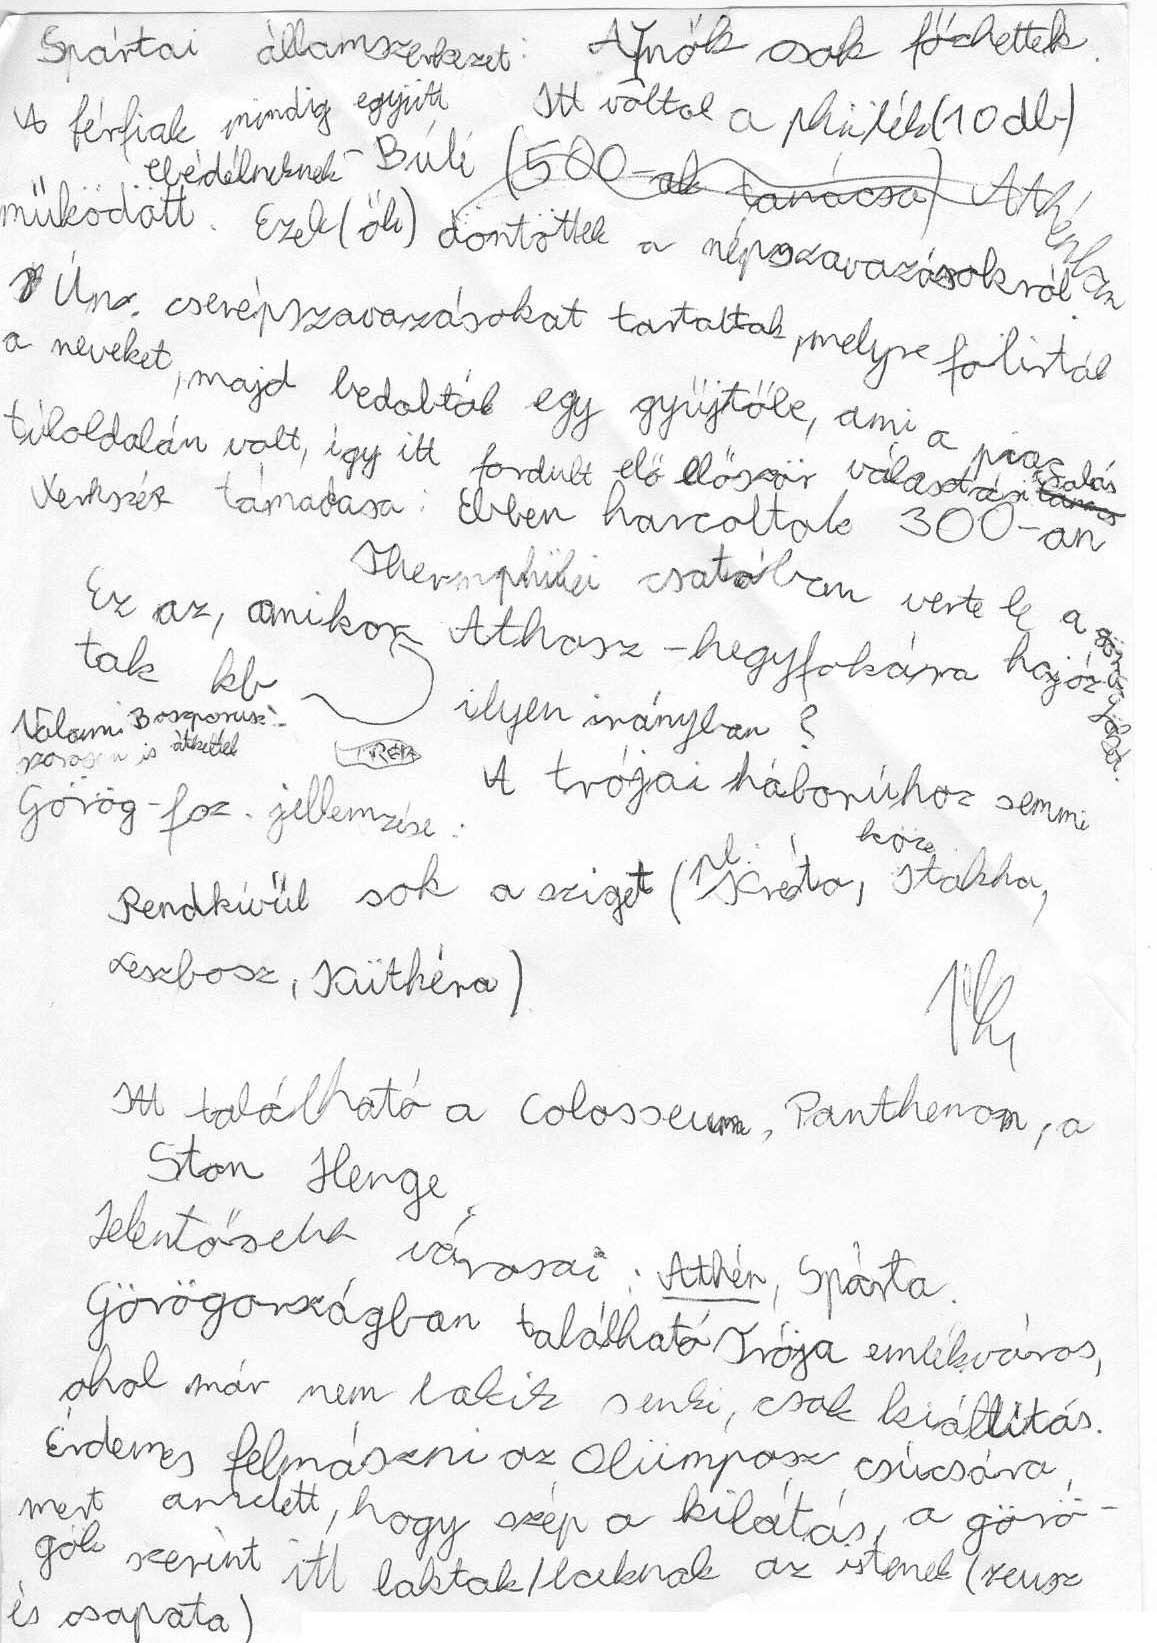 Spártai államszerkezet: A nők csak főzhettek.
A férfiak mindig együtt Itt voltak a phülék (10 db)
ebédelneknek - Búlé (500-ak tanácsa) Athénban
működött. Ezek (ők) döntöttek a népszavazásokról.
Ún. cserépszavazásokat tartottak, melyre fölírták
a neveket, majd bedobták egy gyűjtőbe, ami a piac
túloldalán volt, így itt fordult elő először választási csalás
Xerxszész támadása: Ebben harcoltak 300-an
csatában verte le a
Ez az, amikor Athosz-hegyfokára hajóz
tak kb ilyen irányban?
Valami Boszporusz-
szoroson is átkeltek
A trójai háborúhoz semmi
köze
Görög-foz. jellemzése:
Rendkívül sok a sziget (pl. Kréta, Itakha,
Leszbosz, Küthéra)
Itt található a Colosseum, Panthenon, a
Ston Henge
Jelentősebb városai: Athén, Spárta.
Görögországban található Trója emlékváros,
ahol már nem lakik senki, csak kiállítás.
Érdemes felmászni az Olümposz csúcsára,
mert amelett, hogy szép a kilátás, a görö-
gök szerint itt laktak/laknak az istenek (zeusz
és csapata)